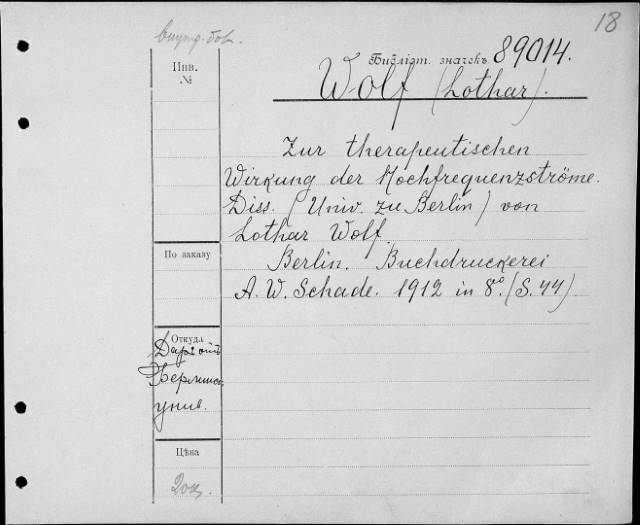 18
внутр. бол.
Библіот. значекъ 89014.
Инв.
№
Wolf (Lothar).
Zur therapeutischen
Wirkung der Hochfrequenzströme.
Diss. (Univ. zu Berlin) von
Lothar Wolf.
Berlin. Buchdruckerei
A. W. Schade. 1912 in 8º. (S. 44)
По заказу
Откуда
Даръ отъ
Берлинск.
унив.
Цѣна